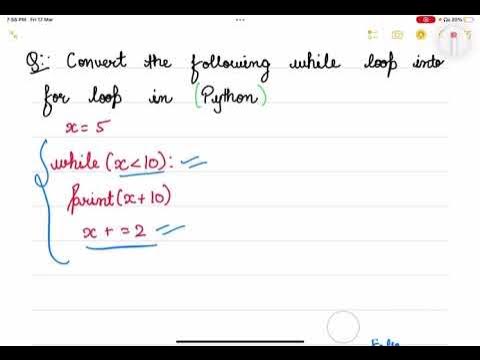 7:55 PM Fri 17 Mar
20%
Q:- Convert the following while loop into
for loop in (Python)
x = 5
while (x < 10):
print(x + 10)
x + = 2